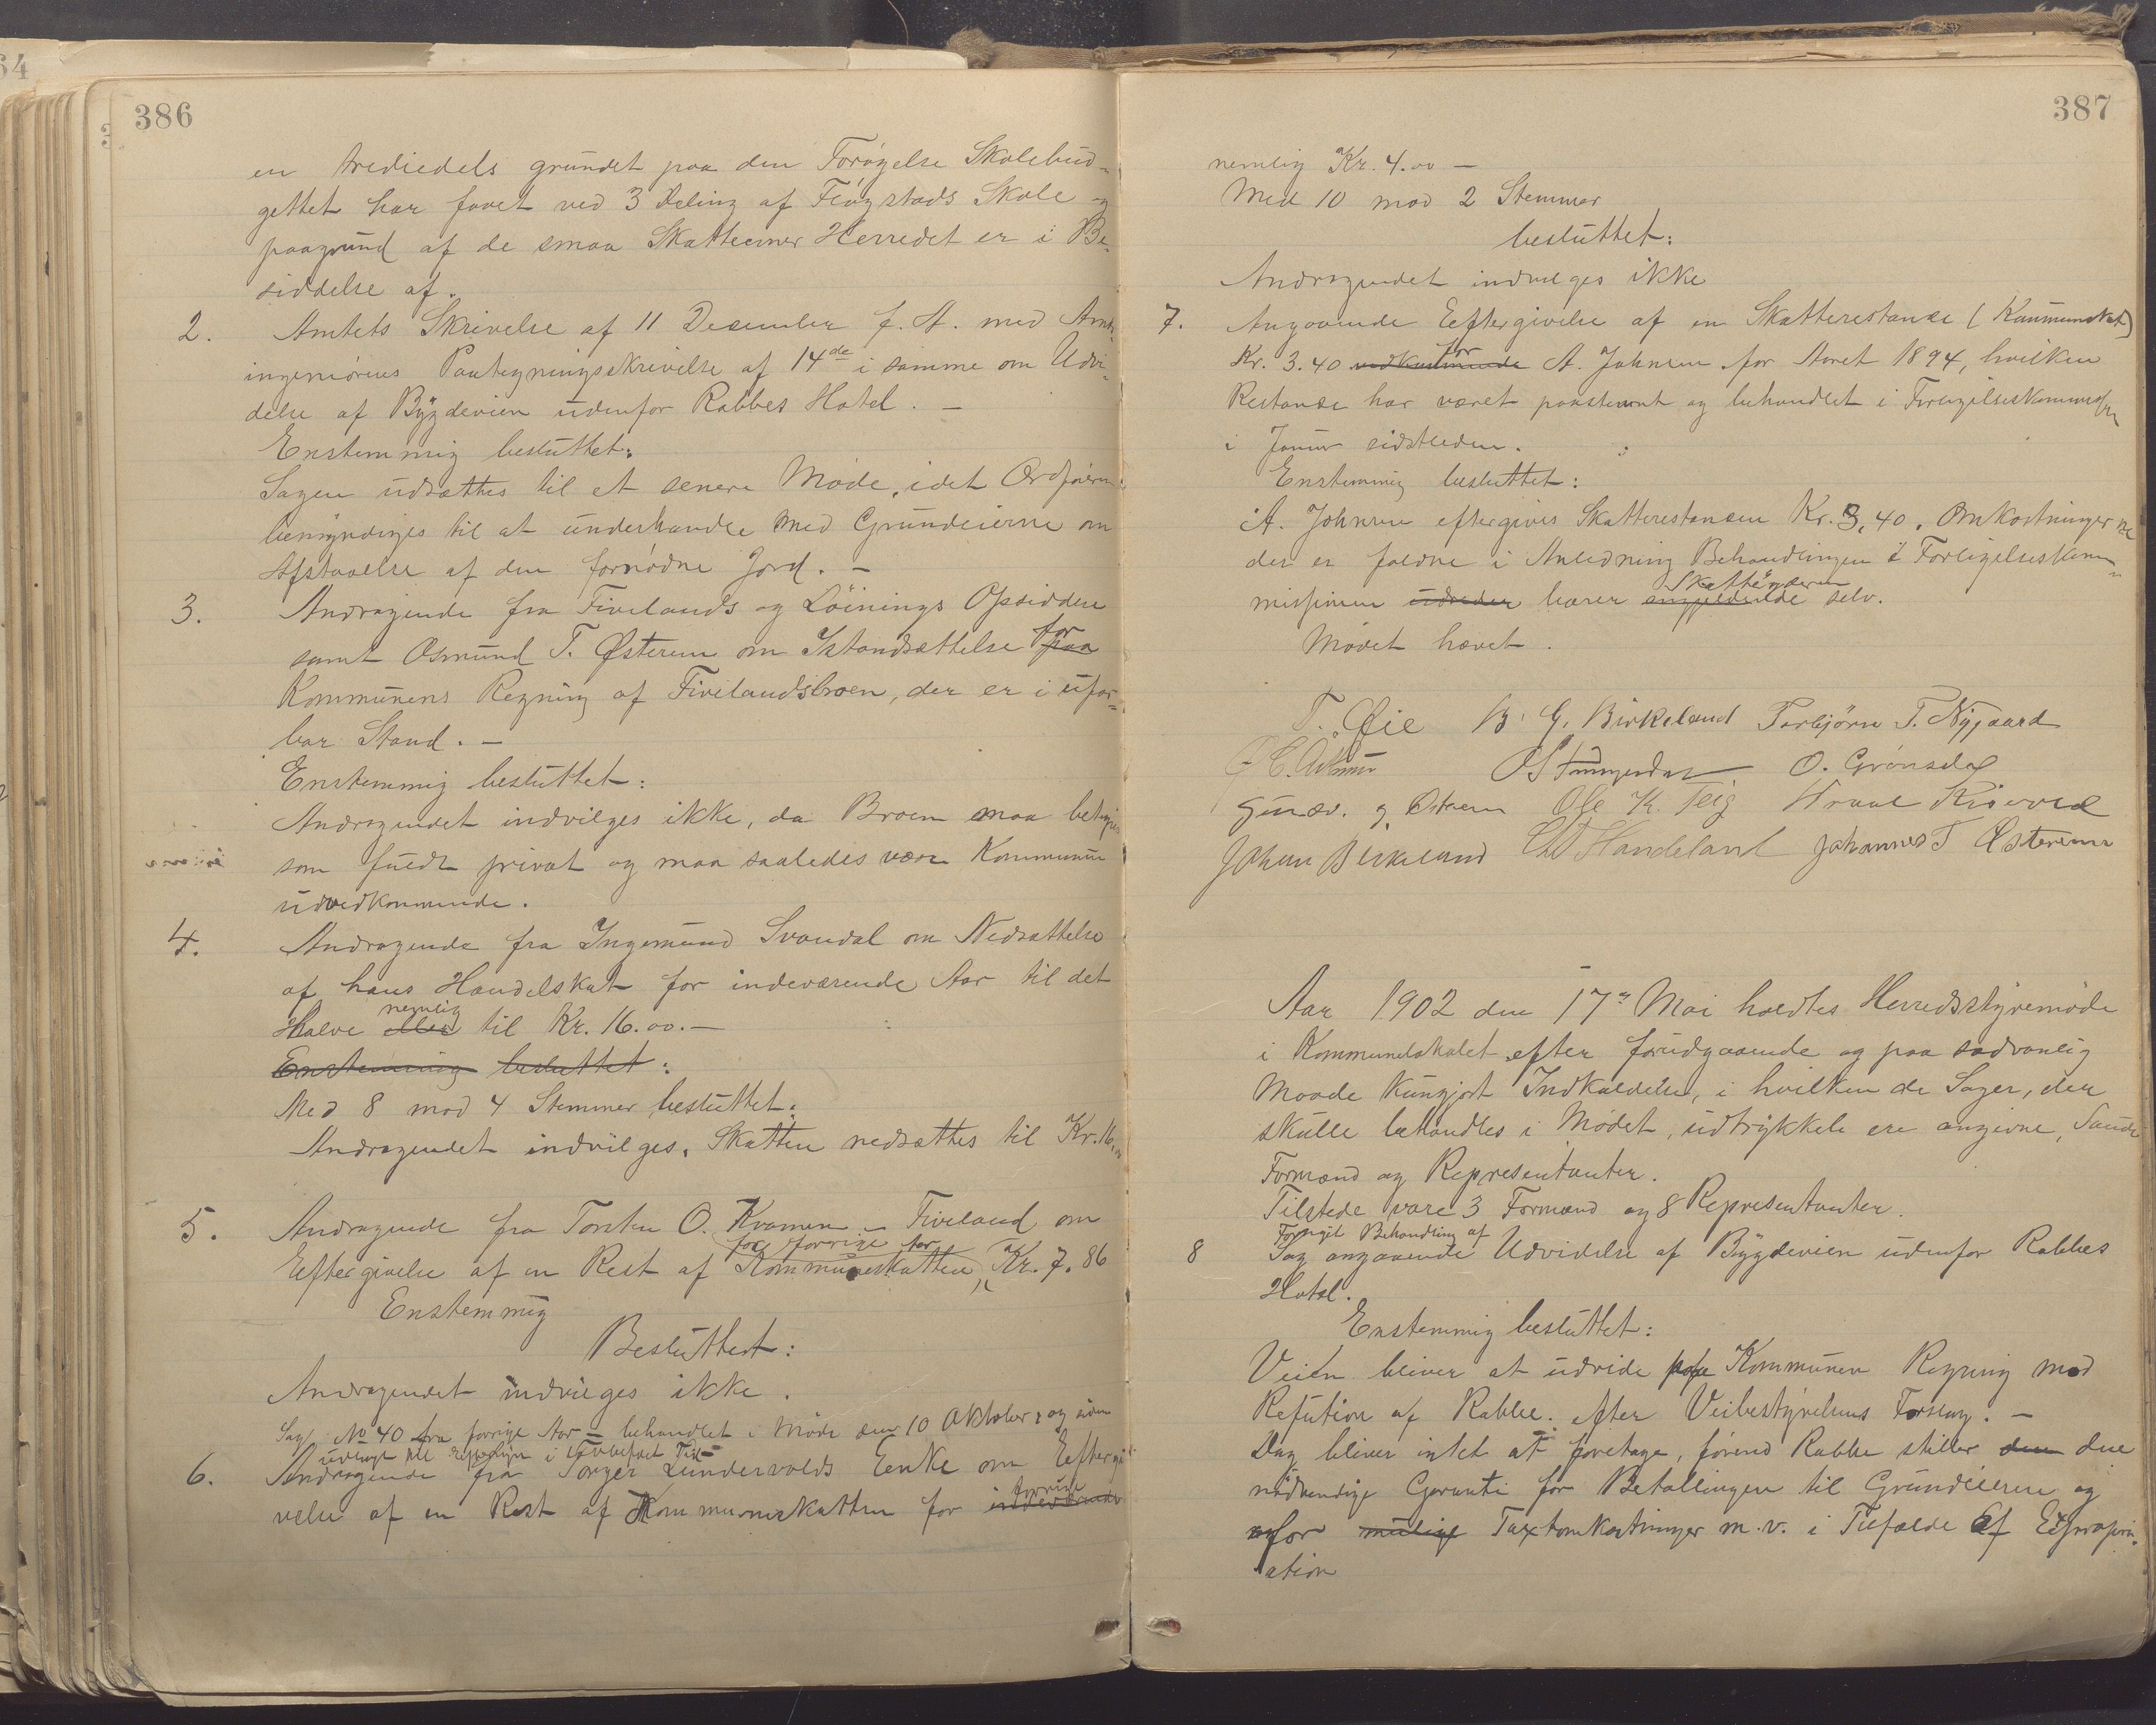 386
en trediedels grundet paa den Forøgelse Skolebud-
gettet har faaet ved 3 Deling af Fløgstads Skole og
paagrund af de smaa Skatteevner Herredet er i Be-
siddelse af.
2. Amtets Skrivelse af 11 December f. A. med Amts-
ingeniørens Paategningsskrivelse af 14de i samme om Udvi-
delse af Bygdeveien udenfor Rabbes Hotel. —
Enstemmig besluttet:
Sagen udsættes til et senere Møde, idet Ordføreren
bemyndiges til at underhandle med Grundeierne om
Afstaaelse af den fornødne Jord. —
3. Andragende fra Fivelands og Löinings Opsiddere
samt Osmund T. Østerem om Istandsættelse for paa
Kommunens Regning af Fivelandsbroen, der er i ufar-
bar Stand. —
Enstemmig besluttet:
Andragendet indvilges ikke, da Broen maa betegnes
som fuldt privat og maa saaledes være Kommunen
uvedkommende.
4. Andragende fra Ingemund Svandal om Nedsættelse
af hans Handelskat for indeværende Aar til det
nemlig
Halve eller til Kr. 16.00. —
Enstemmig besluttet:
Med 8 mod 4 Stemmer besluttet:
Andragendet indvilges. Skatten nedsættes til Kr. 16.00
5. Andragende fra Torsten O. Kvamen - Fiveland om
for forrige Aar
Eftergivelse af en Rest af Kommuneskatten, Kr. 7.86
Enstemmig
Besluttet:
Andragendet indvilges ikke.
Sag No 40 fra forrige Aar - behandlet i Møde den 10 Oktober, og uden
udlagt til Eftersyn i lovbefalet Tid -
6. Andragende fra Torger Lundevolds Enke om Eftergi-
forrige
velse af en Rest af Kommuneskatten for indeværende
387
nemlig Kr. 4.00 —
Med 10 mod 2 Stemmer
besluttet:
Andragendet indvilges ikke
7. Angaaende Eftergivelse af en Skatterestance (Kommuneskat)
for
Kr. 3.40 vedkommende A. Johnsen for Aaret 1894, hvilken
Restance har været paastevnt og behandlet i Forligelseskommissionen
i Januar sidstleden.
Enstemmig besluttet:
A. Johnsen eftergives Skatterestancen Kr. 3,40. Omkostningerne
der er faldne i Anledning Behandlingen i Forligelseskom-
Skatteyderen
missionen udreder bærer angjeldende selv.
Mødet hævet.
T. Øie B. G. Birkeland Torbjörn T. Nygaard
O. Grönsdal
Gunv. G. Østrem Ole K. Teig Traal Kjørrel
Johan Birkeland Chr Handeland Johannes T Østerem
Aar 1902 den 17de Mai holdtes Herredsstyremøde
i Kommunelokalet efter forudgaaende og paa sædvanlig
Maade kungjort Indkaldelse, i hvilken de Sager, der
skulle behandles i Mødet, udtrykkele ere angivne, Samtl.
Formænd og Representanter.
Tilstede vare 3 Formænd og 8 Representanter.
Fornyet Behandling af
8 Sag angaaende Udvidelse af Bygdeveien udenfor Rabbes
Hotel.
Enstemmig besluttet:
Veien bliver at udvide paa Kommunen Regning mod
Refution af Rabbe. efter Veibestyrelsens Forslag. —
Dog bliver intet at foretage, førend Rabbe stiller den den
nødvendige Garanti for Betallingen til Grundeieren og
for mulige Taxtomkostninger m.v. i Tilfælde af Expropri-
ation